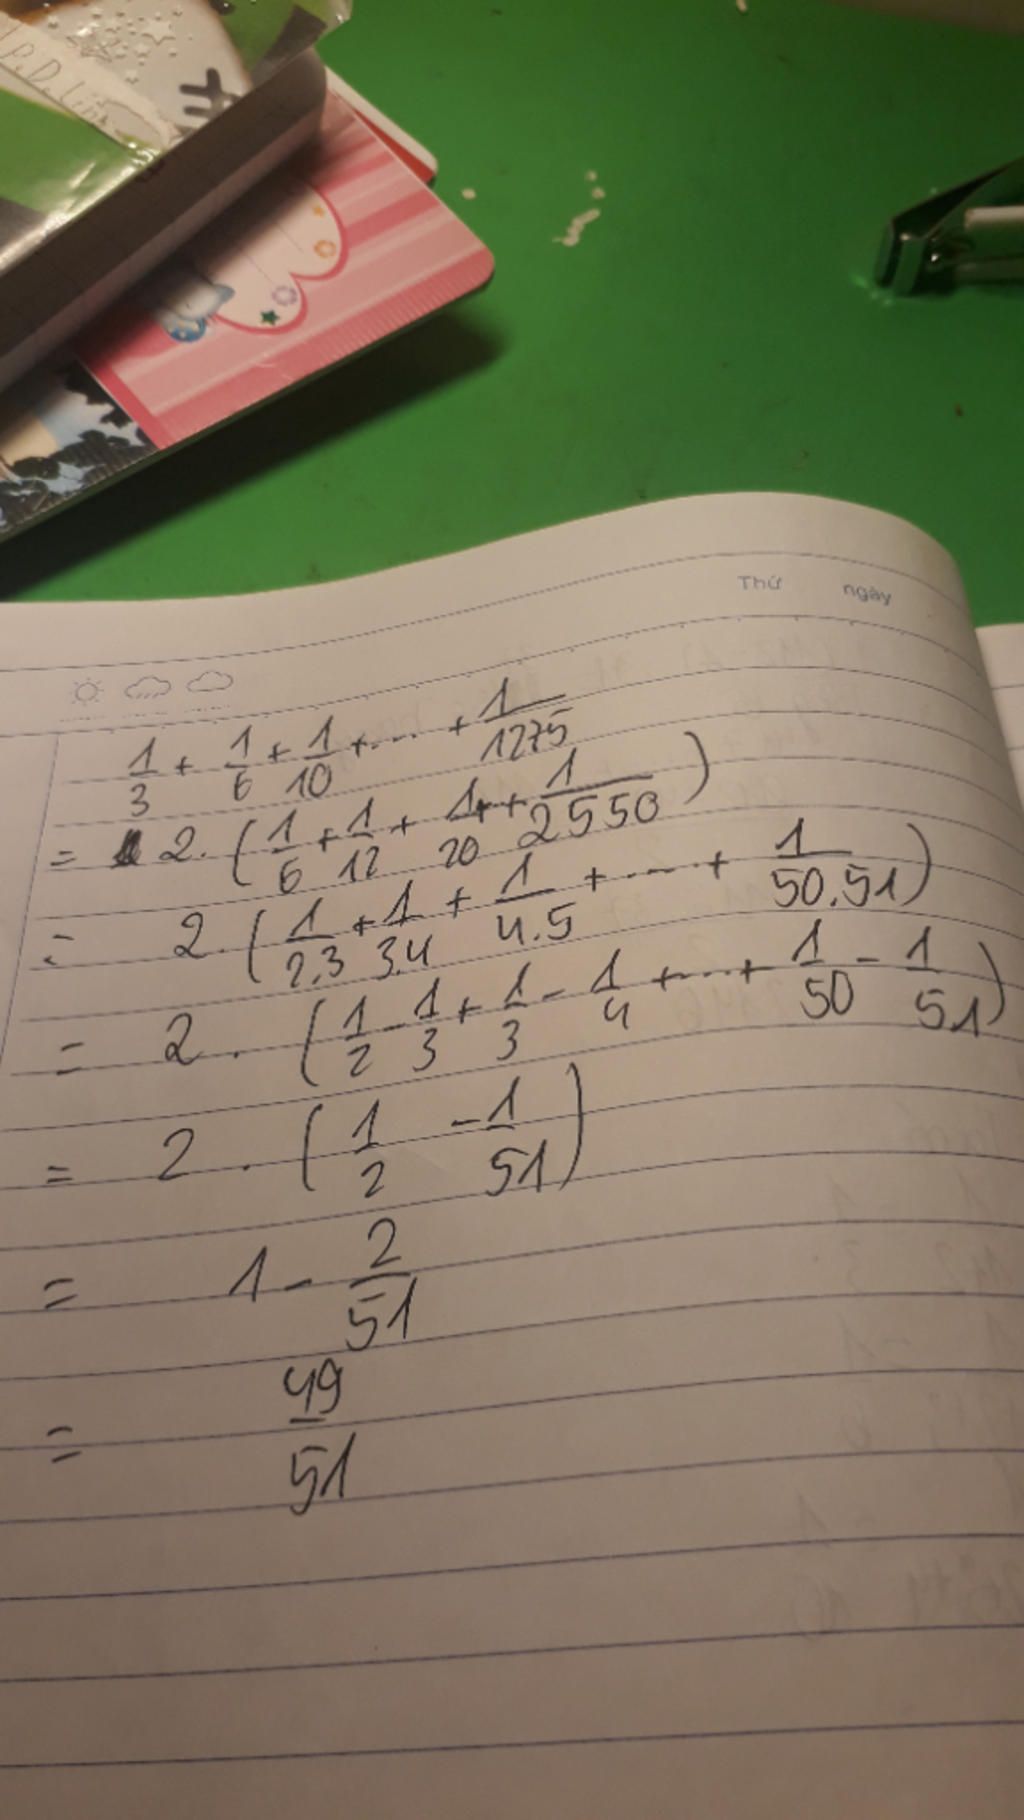 P.D.Linh
Thứ ngày
1/3 + 1/6 + 1/10 + .... + 1/1275
= 2. (1/6 + 1/12 + 1/20 + + 1/2550)
= 2. (1/2.3 + 1/3.4 + 1/4.5 + .... + 1/50.51)
= 2 . (1/2 - 1/3 + 1/3 - 1/4 + ... + 1/50 - 1/51)
= 2 . (1/2 - 1/51)
= 1 - 2/51
= 49/51